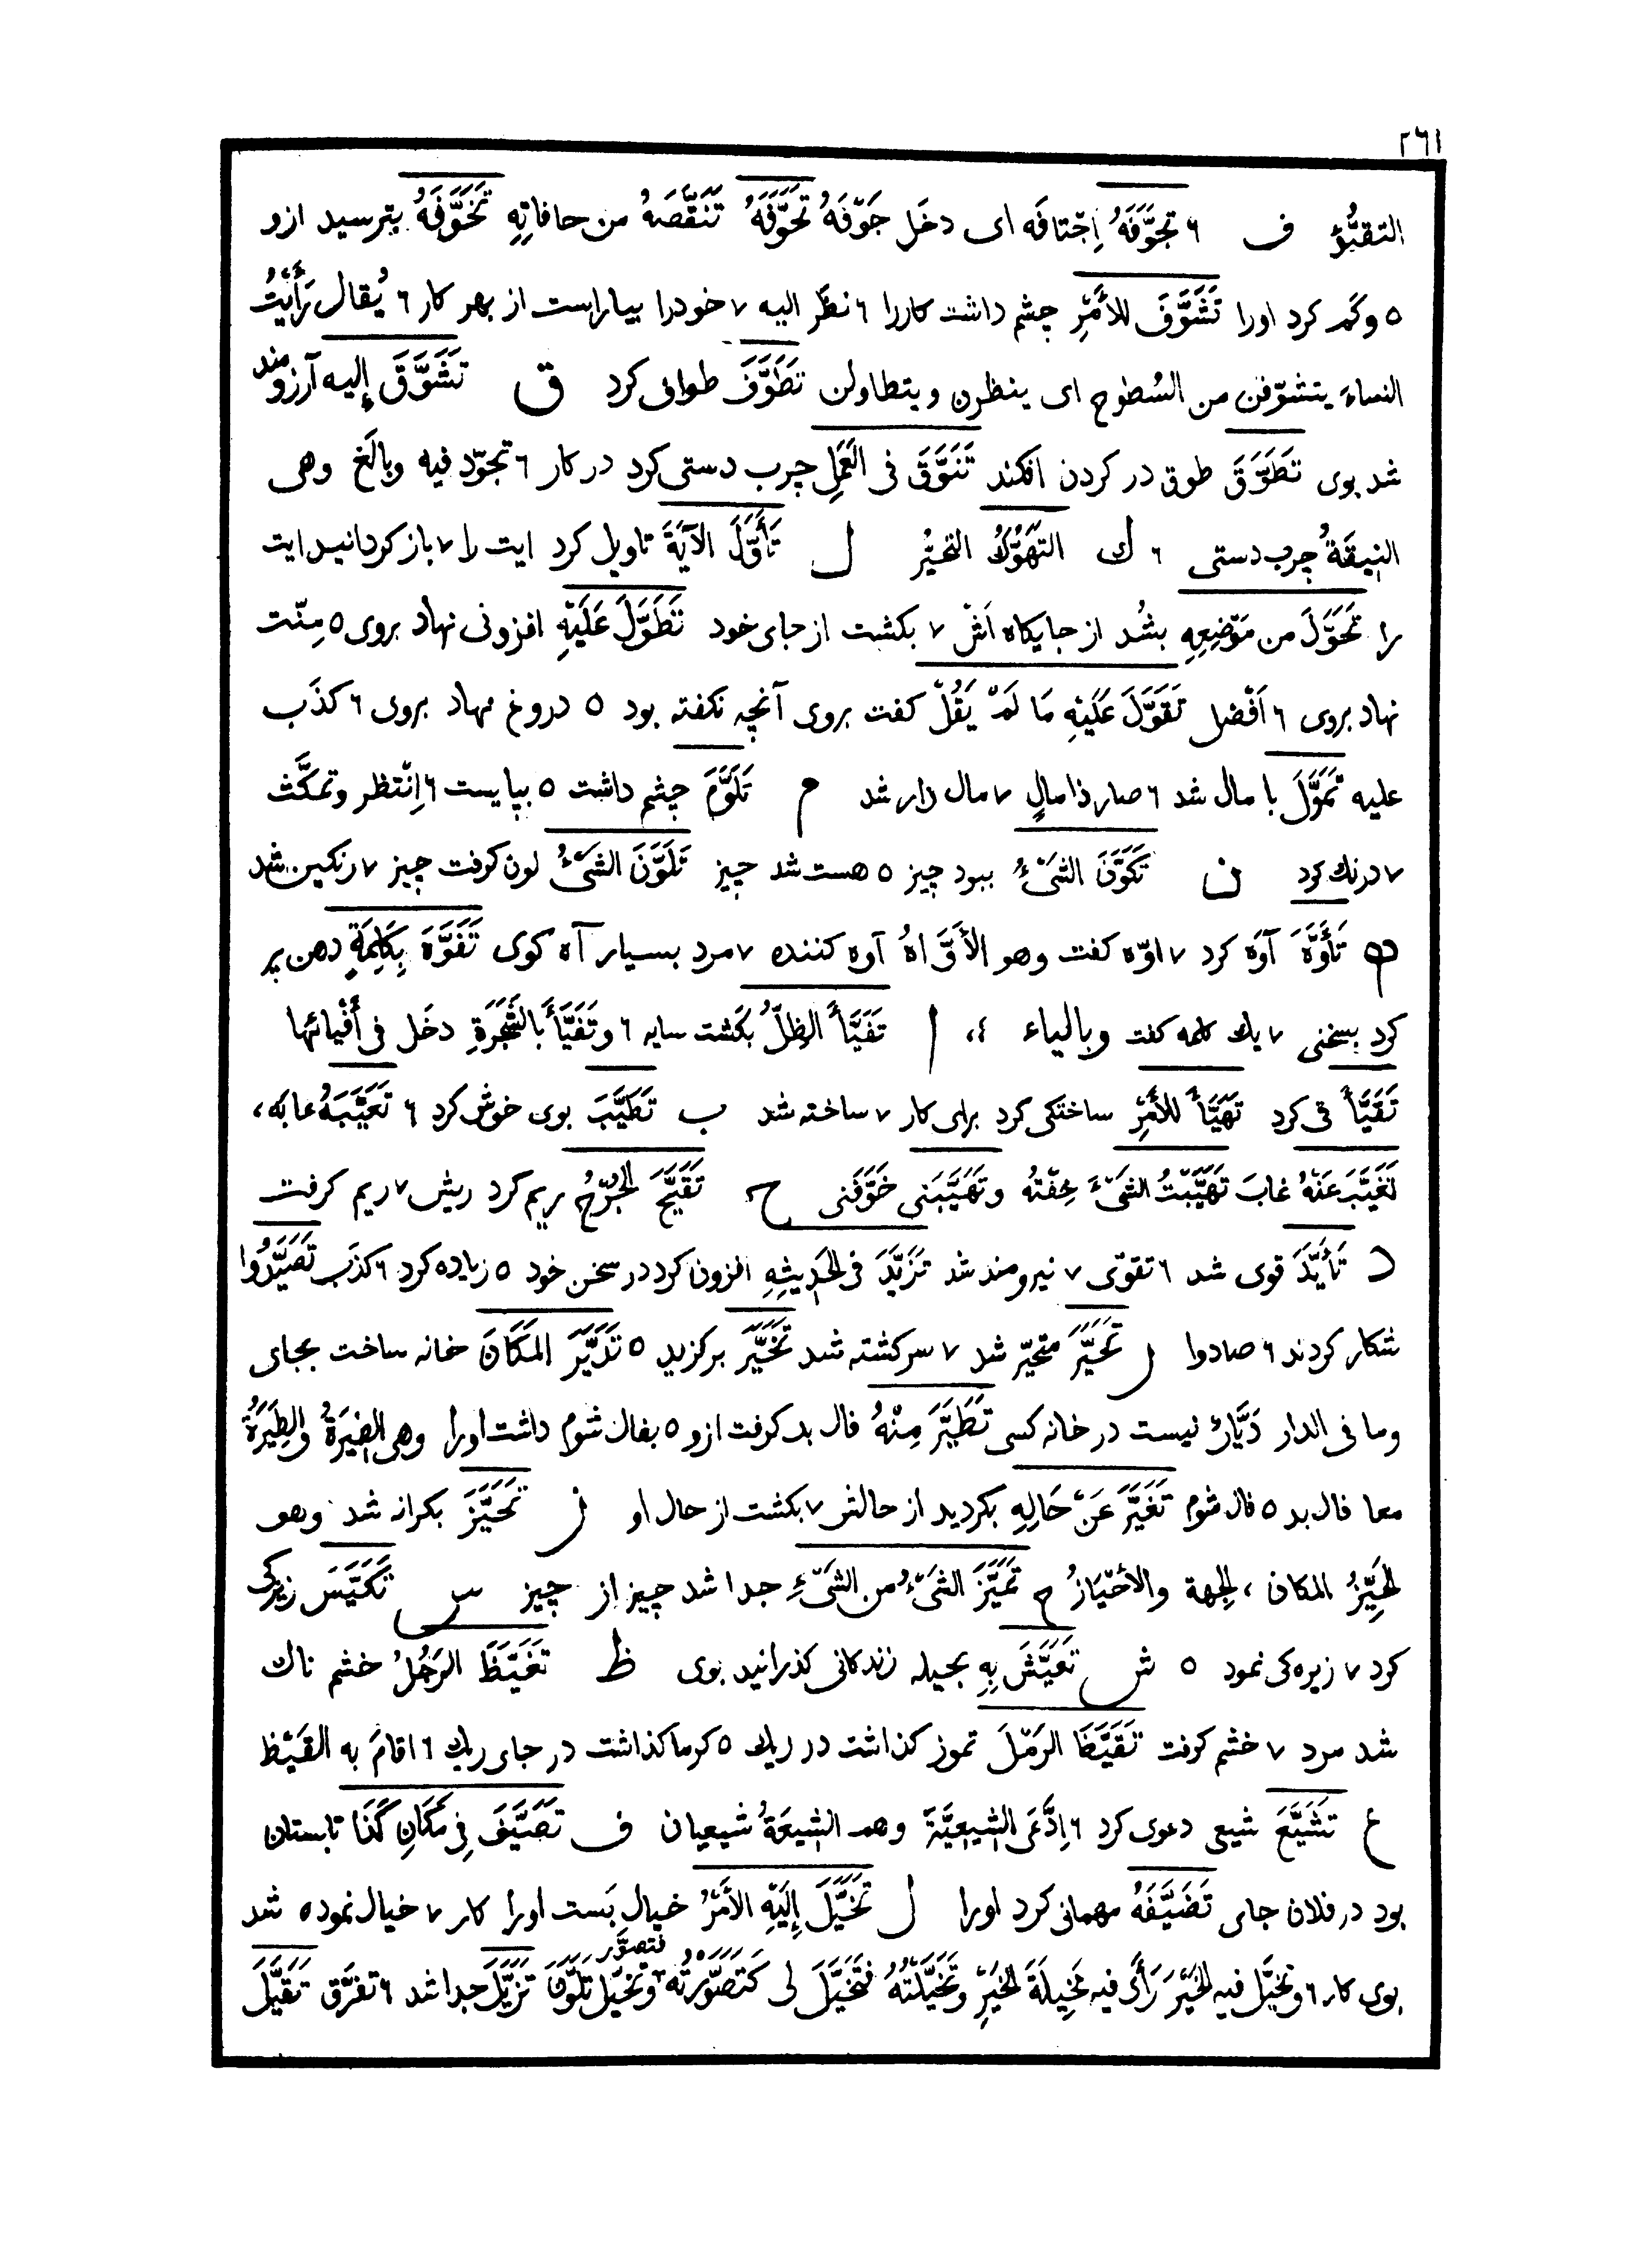 ٢٦١
التقبُّوّ ف ٦ تَجَوَّفَهُ اِجْتافَه اى دخَل جَوْفَهُ تَحَوَّفَهُ تَنَقَّصَهُ من حافاتِهِ تَخَوَّفَهُ بترسيد ازو
٥ وكم كرد اورا تَشَوَّفَ للأَمْرِ چشم داشت كاررا ٦ نظَر اليه ٧ خودرا بياراست از بهر كار ٦ يُقال رَأَيْتُ
النساءَ يتشوّفن من السُطوح اى ينظرن ويتطاولن تَطَوَّفَ طوافى كرد ق تَشَوَّقَ إليه آرزومند
شد بوى تَطَوَّقَ طوق در كردن افكند تَنَوَّقَ فى العَمَلِ چرب دستى كرد در كار ٦ تجوّد فيه وبالَغ وهى
النِيقَةُ چرب دستى ٦ ك التَهَوُّكُ التحيُّر ل تَأَوَّلَ الآيَةَ تاويل كرد ايت را ٧ باز كردانيد ايت
را تَحَوَّلَ من مَوْضِعِهِ بشُد از جايكاه اَشْ ٧ بكشت از جاى خود تَطَوَّلَ عَلَيْهِ افزونى نهاد بروى ٥ مِنّت
نهاد بروى ٦ اَفْضل تَقَوَّلَ عَلَيْهِ مَا لَمْ يَقُلْ كفت بروى آنچه نكفته بود ٥ دروغ نهاد بروى ٦ كذَب
عليه تَمَوَّلَ با مال شد ٦ صار ذا مالٍ ٧ مال دار شد م تَلَوَّمَ چشم داشت ٥ بپايست ٦ اِنْتظر وتمكَّث
٧ درنك كرد ن تَكَوَّنَ الشَىْءُ ببود چيز ٥ هست شد چيز تَلَوَّنَ الشَىْءُ لون كرفت چيز ٧ رنكين شد
ه تَأَوَّهَ آوَه كرد ٧ اوّه كفت وهو الأَوَّاهُ آوه كننده ٧ مرد بسيار آه كوى تَفَوَّهَ بِكَلِمَةٍ دهن پر
كرد بسخنى ٧ يك كلمه كفت وبالياء ء ا تَفَيَّأَ الظِلُّ بكَشت سايه ٦ وتَفَيَّأَ بالشَجَرَةِ دخَل فى أَفْيائها
تَقَيَّأَ قى كرد تَهَيَّأَ للأَمْرِ ساختكى كرد براى كار ٧ ساخته شد ب تَطَيَّبَ بوى خوش كرد ٦ تَعَيَّبَهُ عابَه،
تَغَيَّبَ عَنْهُ غابَ تَهَيَّبْتُ الشَىْءَ خِفْتُه وتَهَيَّبَنِى خَوَّفَنى ح تَقَيَّحَ الجُرْحُ ريم كرد ريش ٧ ريم كرفت
د تَأَيَّدَ قوى شد ٦ تقوّى ٧ نيرومند شد تَزَيَّدَ فى الحَدِيثِهِ افزون كرد در سخن خود ٥ زياده كرد ٦ كذَب تَصَيَّدُوا
شكار كردند ٦ صادوا ر تَحَيَّرَ متحيّر شد ٧ سركشته شد تَخَيَّرَ بركزيد ٥ تَدَيَّرَ المَكَانَ خانه ساخت بجاى
وما فى الدار دَيَّارٌ نيست در خانه كسى تَطَيَّرَ مِنْهُ فال بد كرفت ازو ٥ بفال شوم داشت اورا وهى الطِيرَةُ والطِيَرَةُ
معا فال بد ٥ فال شوم تَغَيَّرَ عَنْ حَالِهِ بكرديد از حالش ٧ بكشت از حال او ز تَحَيَّزَ بكرانه شد وهو
الحَيِّزُ المكان ، الجهة والأحْيَازُ ج تَمَيَّزَ الشَىْءُ من الشَىْءِ جدا شد چيز از چيز س تَكَيَّسَ زيركى
كرد ٧ زيره كى نمود ٥ ش تَعَيَّشَ بِهِ بحيله زندكانى كذرانيد بوى ظ تَغَيَّظَ الرَجُلُ خشم ناك
شد مرد ٧ خشم كرفت تَقَيَّظَ الرَمْلَ تموز كذاشت در ريك ٥ كرما كذاشت در جاى ريك ٦ اقامَ به القَيْظ
ع تَشَيَّعَ شيعى دعوى كرد ٦ اِدَّعَى الشِيعِيَّةَ وهم الشِيعَةُ شيعيان ف تَصَيَّفَ فِى مَكَانِ كَذَا تابستان
بود در فلان جاى تَضَيَّفَهُ مهمانى كرد اورا ل تَخَيَّلَ إِلَيْهِ الأَمْرُ خيال بَست اورا كار ٧ خيال نموده شد
بوى كار ٦ وتخيَّل فيه الخَيْرَ رَأَى فيه مَخِيلَةَ الخَيْرِ وتَخَيَّلْتُهُ فتَخَيَّلَ لى كَتصَوَّرْتُه فتصوَّر وتَخَيَّل تَلَوَّنَ تَزَيَّلَ جدا شد ٦ تفرَّق تَقَيَّلَ